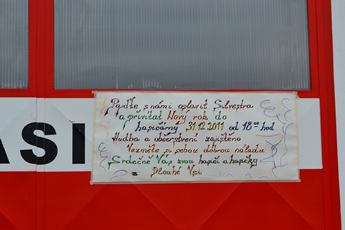 Pojďte s námi oslavit Silvestra
a přivítat Nový rok do
hasičárny 31.12.2011 od 18⁰⁰ hod
Hudba a občerstvení zajištěno
Vezměte s sebou dobrou náladu
Srdečně Vás zvou hasiči a hasičky
Dlouhé Vsi
ASI